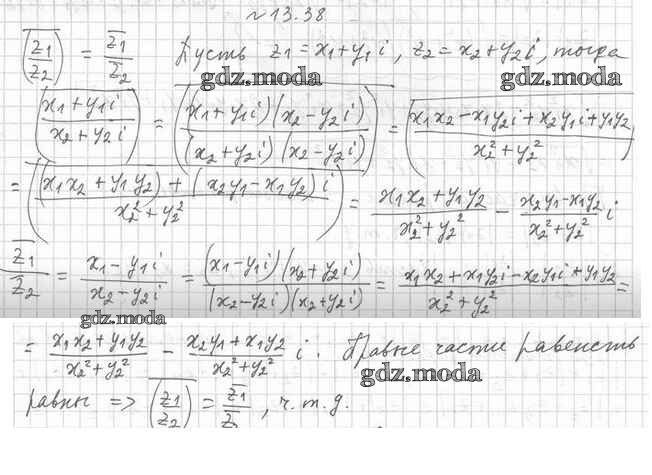 №13.38
\overline{(z₁/z₂)} = \overline{z₁}/\overline{z₂} Пусть z₁ = x₁ + y₁i, z₂ = x₂ + y₂i, тогда
gdz.moda gdz.moda
\overline{((x₁ + y₁i)/(x₂ + y₂i))} = \overline{((x₁ + y₁i)(x₂ − y₂i)/((x₂ + y₂i)(x₂ − y₂i)))} = \overline{((x₁x₂ − x₁y₂i + x₂y₁i + y₁y₂)/(x₂² + y₂²))}
= \overline{(((x₁x₂ + y₁y₂) + (x₂y₁ − x₁y₂)i)/(x₂² + y₂²))} = (x₁x₂ + y₁y₂)/(x₂² + y₂²) − (x₂y₁ − x₁y₂)/(x₂² + y₂²) i
\overline{z₁}/\overline{z₂} = (x₁ − y₁i)/(x₂ − y₂i) = (x₁ − y₁i)(x₂ + y₂i)/((x₂ − y₂i)(x₂ + y₂i)) = (x₁x₂ + x₁y₂i − x₂y₁i + y₁y₂)/(x₂² + y₂²) =
gdz.moda
= (x₁x₂ + y₁y₂)/(x₂² + y₂²) − (x₂y₁ + x₁y₂)/(x₂² + y₂²) i. Правые части равенств
gdz.moda
равны => \overline{(z₁/z₂)} = \overline{z₁}/\overline{z₂}, ч.т.д.